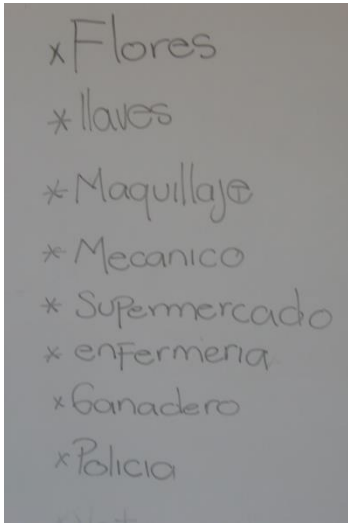 x Flores
* llaves
* Maquillaje
* Mecanico
* Supermercado
* enfermeria
x Ganadero
x Policia